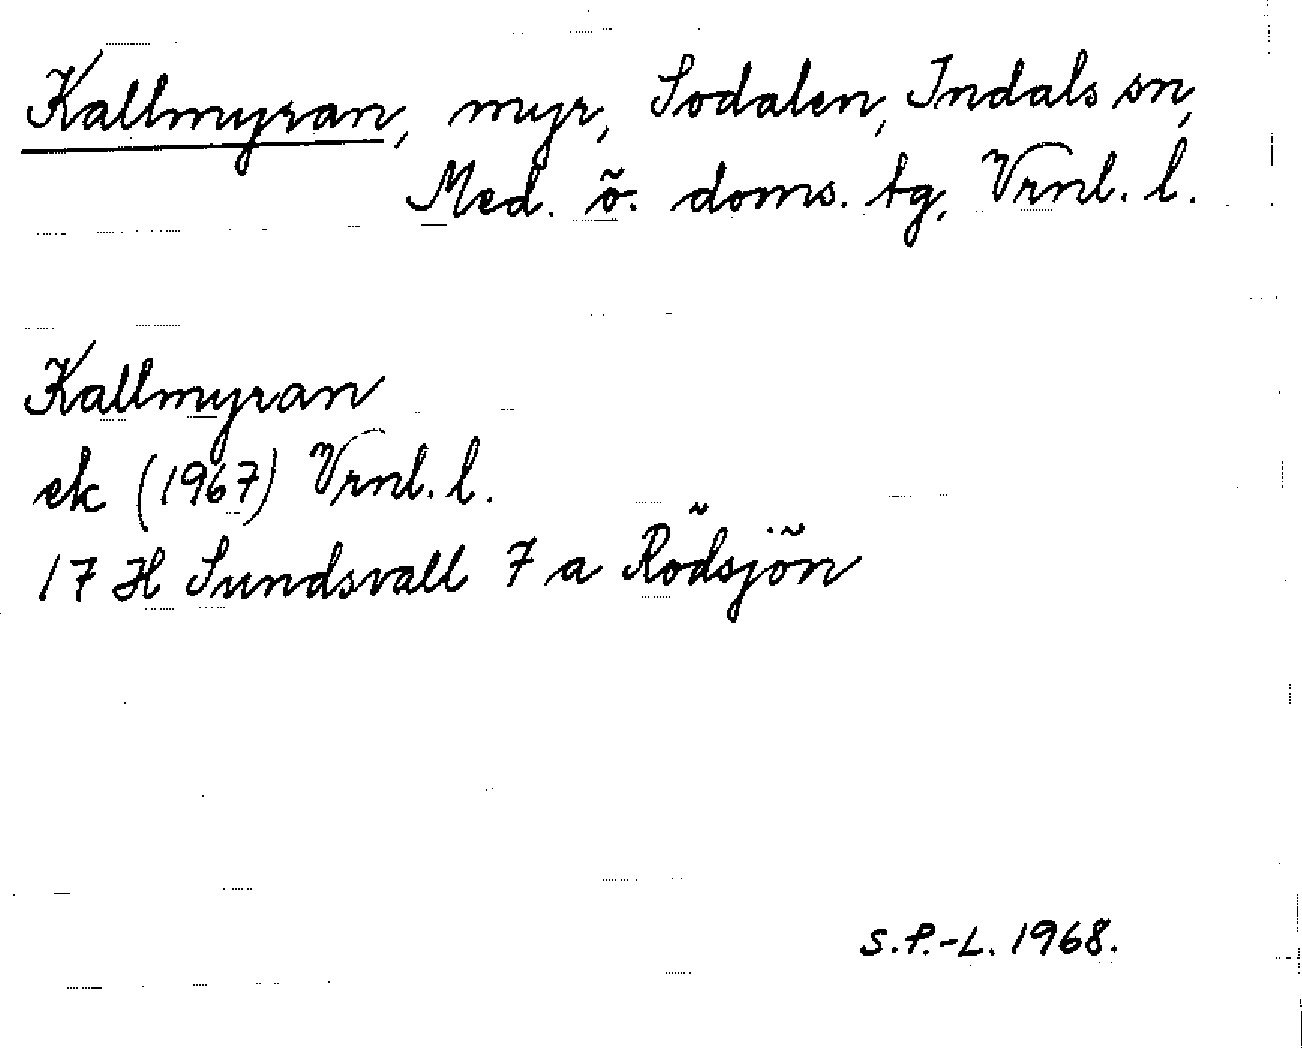 Kallmyran, myr, Sodalen, Indals sn,
Med. ö. doms. tg, Vrnl. l.
Kallmyran
ek (1967) Vrnl. l.
17 H Sundsvall 7 a Rödsjön
S.P.-L. 1968.